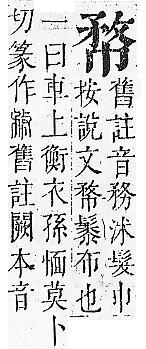 㡔
舊註音務沐髮巾
按說文㡔䰍布也
一曰車上衡衣孫愐莫卜
切篆作舊註闕本音